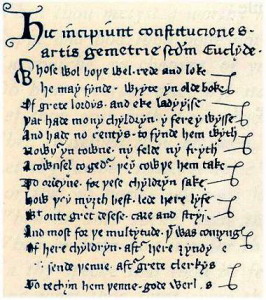 Hic incipiunt constituciones
artis gemetrie scdm Euclyde.
Whose wol boþe wel rede and loke
He may fynde wryte yn olde boke
Of grete lordys and eke ladyysse
þat had mony chyldryn y fere y wysse
And hade no rentys to fynde hem wyth
Nowþer yn towne ny felde ny fryth
A cownsel to geder þey cowþe hem take
To ordeyne for þese chyldryn sake
How þey myȝth best lede here lyfe
Wt oute gret desese care and stryf
And most for þe multytude þt was comyng
Of here chyldryn aft here ȝyndyng
sende þenne aft grete clerkys
To techyn hem þenne gode werk s